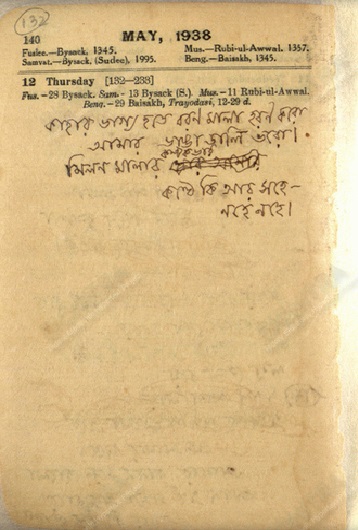 132
140
MAY, 1938
Fuslee.—Bysack, 1345.
Mus.—Rubi-ul-Awwal. 1357.
Samvat.—Bysack, (Sudee), 1995.
Beng.—Baisakh, 1345.
12 Thursday [132—233]
Fus.—28 Bysack. Sam.- 13 Bysack (S.). Mus.—11 Rubi-ul-Awwal.
Beng.—29 Baisakh, Trayodasi, 12-29 d.
কাহার ভাগ্য হতে বরণ মালা হরণ করো
আমার ভাঙা ডালি ভরো।
মিলন মালার কণ্টকভার
কণ্ঠে কি আর সহে-
নহে নহে।